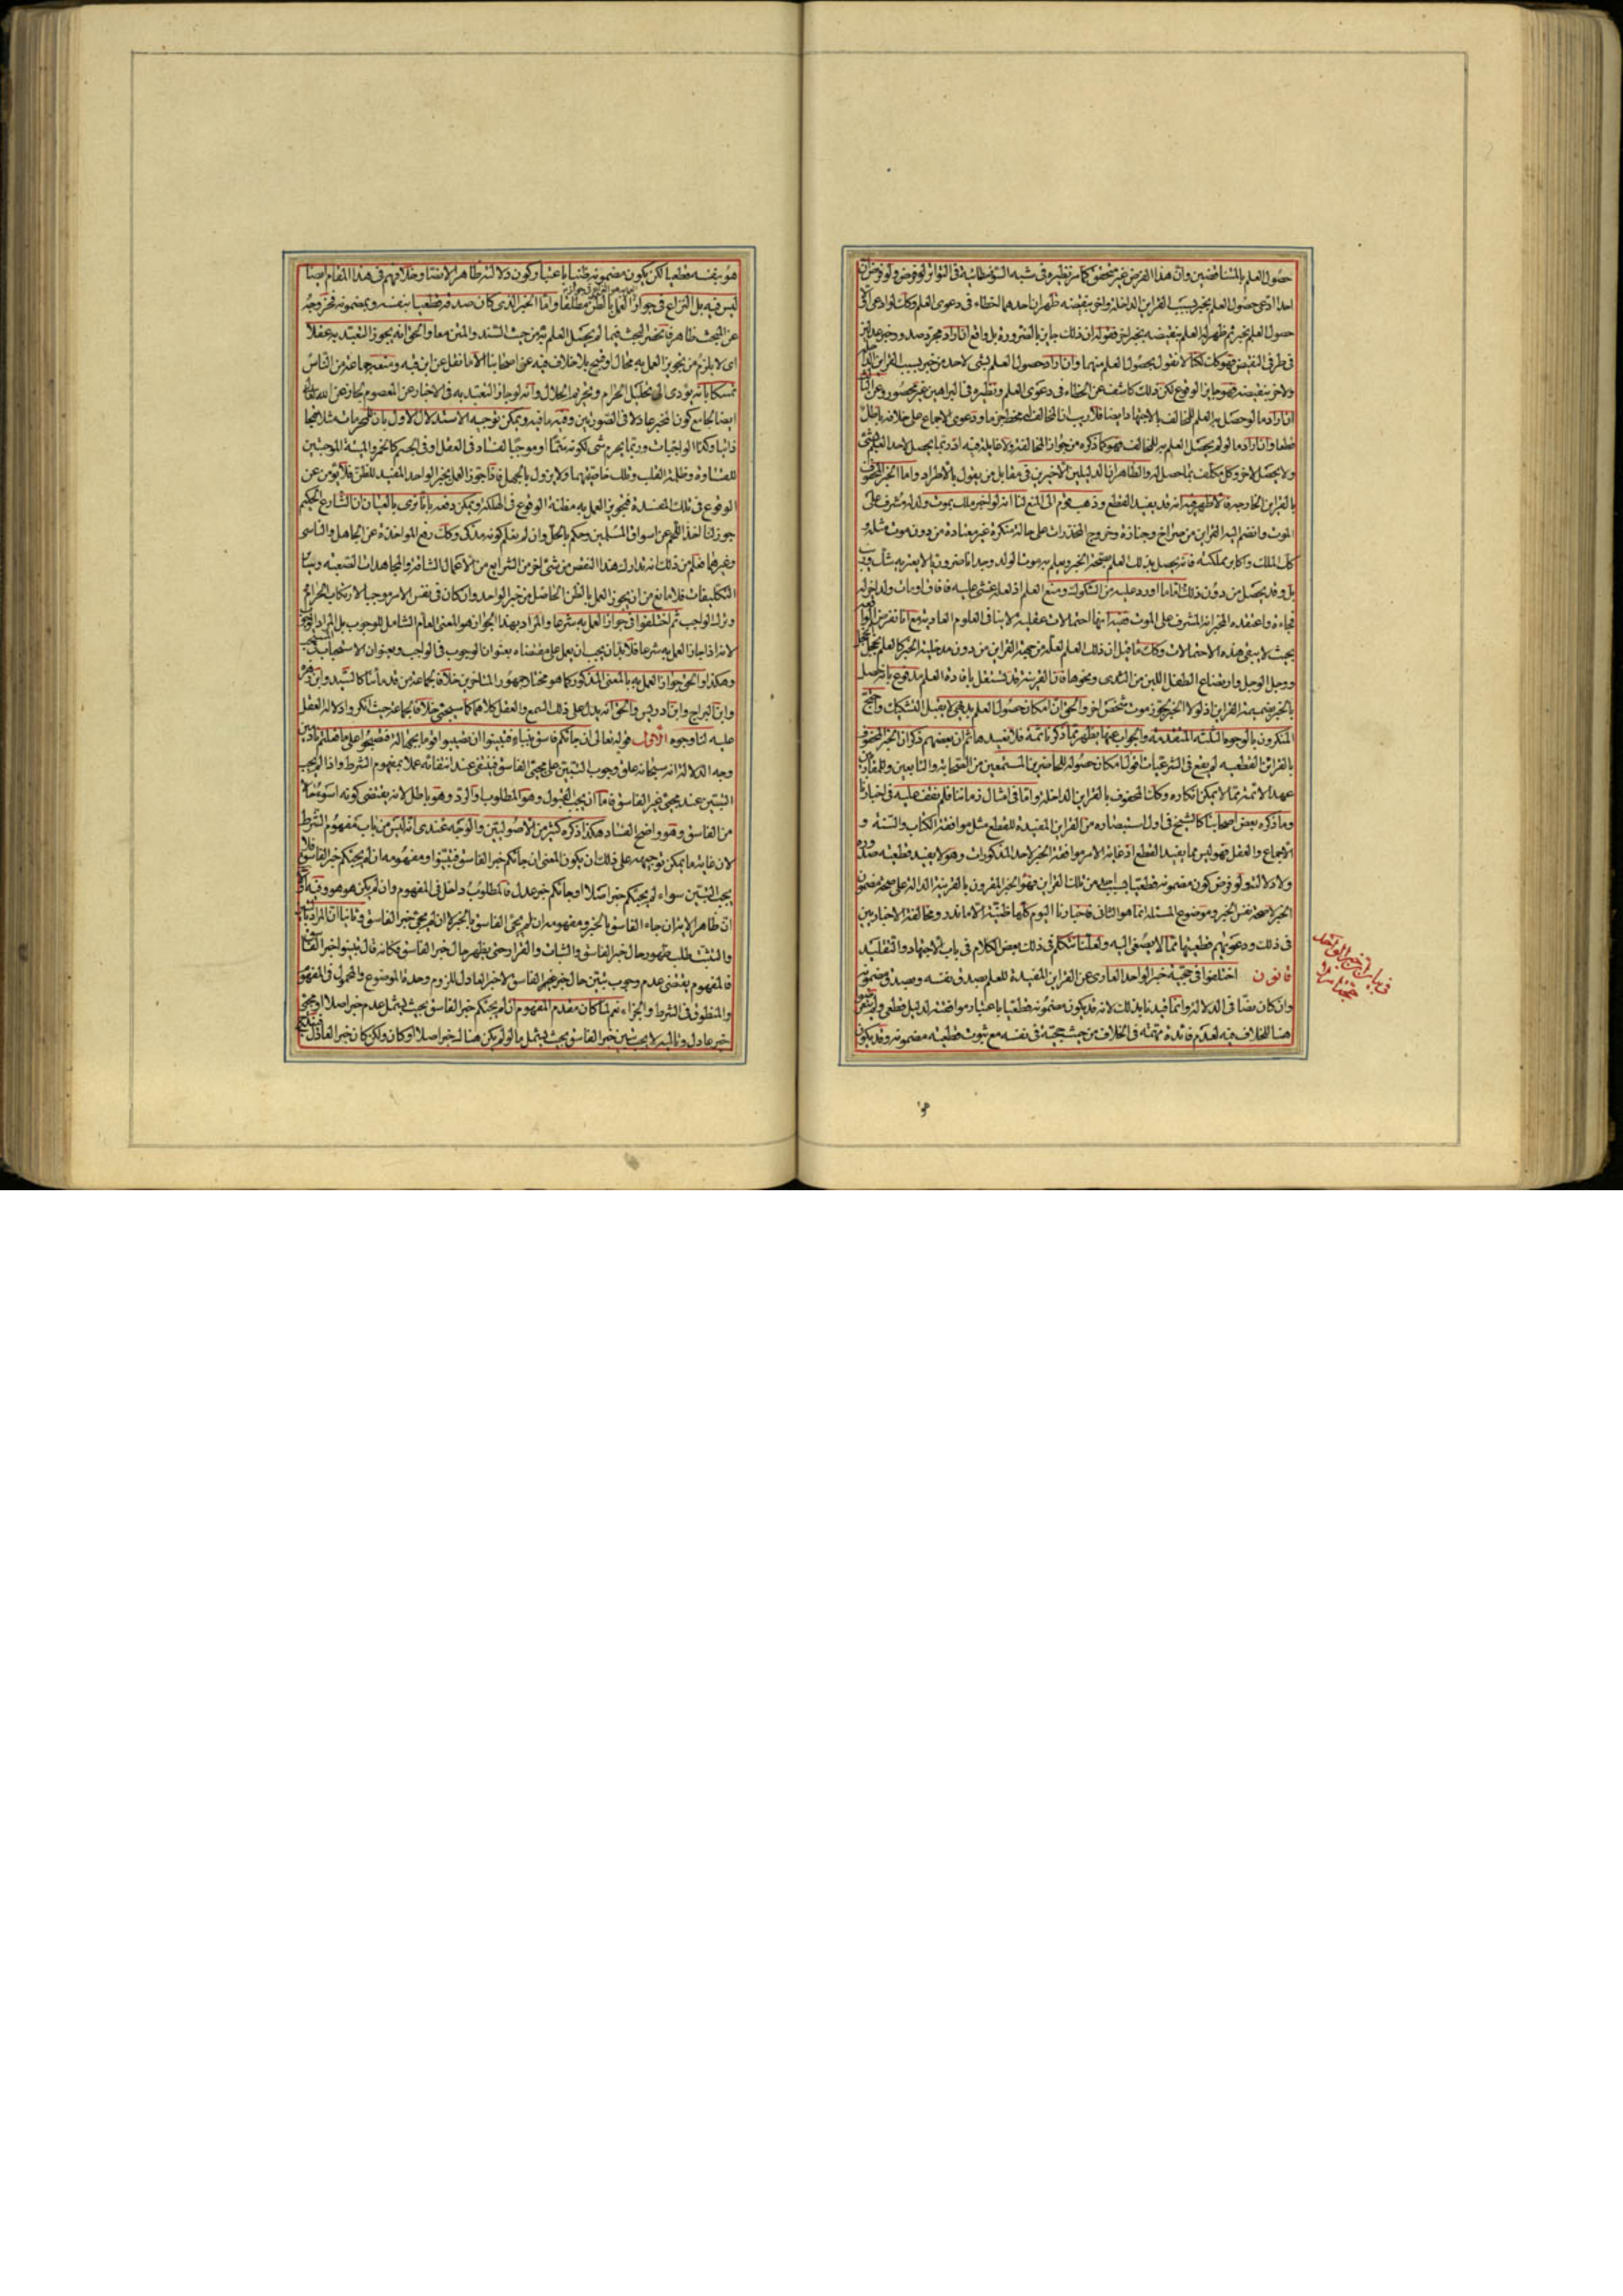 حصول العلم بالمتناقضين وان هذا الفرض غير متحقق كما مر نظيره فى شبه السوفسطائية فى التواتر لو فرض ولو فرض ان
احدا ادعى حصول العلم بخبر بسبب القراين الداخلة واخر بنقيضه ظهر ان احدهما اخطاء فى دعوى العلم وكك لو ادعى
حصول العلم بخبر ثم ظهر له العلم بنقيضه بخبر اخر فقوله ان ذلك جايز بالضرورة بل واقع ان اراد مجرد صدور خبر عدلين
فى طرفى النقيض فهو كك لكنا لا نقول بحصول العلم منهما وان اراد حصول العلم بشئ لاحد من خبر بسبب القراين
ولاخر بنقيضه فهو جايز الوقوع لكن ذلك كاشف عن الخطاء فى دعوى العلم ونظيره فى البراهين غير محصور وعن
ان اراد ما لو حصل به العلم للمخالف بالاجتهاد ايضا فلا ريب ان المخالف له مخطئ حزما ودعوى الاجماع على خلافه باطل
قطعا وان اراد ما لو لم يحصل العلم به للمخالف فهو كما ذكره من جواز المخالفة ولا غايلة فيه اذ ربما يحصل لاحد العلم من شئ
ولا يحصل لاخر وكل مكلف بما حصل له والظاهر ان الدليلين الاخيرين فى مقابل من يقول بالاطراد واما الخبر المحفوف
بالقراين الخارجية فالاظهر فيه انه قد يفيد القطع وذهب قوم الى المنع لنا انه لو اخبر ملك بموت ولد له مشرف على
الموت وانضم اليه القراين من صراخ وجنازة وخروج المخدرات على حالة منكرة غير معتادة من دون موت مثله و
كك الملك واكابر مملكته فانه يحصل بذلك العلم بصحة الخبر ويعلم به موت الولد وجدانا ضروريا لا يعتريه شك وريب
بل وقد يحصل من دون ذلك اما ما اورد عليه من الشكوك ومنع العلم اذ لعله غشى عليه فافاق او مات ولد اخر له
فجاءة واعتقده المخبر انه المشرف على الموت ففيه انها احتمالات عقلية لا تنافى العلوم العادية مع انا نفرض الواقعة
بحيث لا يبقى هذه الاحتمالات وكك ما قيل ان ذلك العلم لعله من جهة القراين من دون مدخلية الخبر كالعلم بخجل الخجل
ووجل الوجل وارتضاع الطفل اللبن من الثدى ونحوها فان القرينة قد تستقل بافادة العلم مدفوع بانه حصل
بالخبر بضميمة القراين اذ لولا الخبر لجوز موت شخص اخر والحق ان امكان حصول العلم بديهى لا يقبل التشكيك واحتج
المنكرون بالوجوه الثلثة المتقدمة والجواب عنها يظهر مما ذكرنا ثمة فلا نعيدها ثم ان بعضهم ذكر ان الخبر المحفوف
بالقراين القطعيه لم يقع فى الشرعيات اقول امكان حصوله للحاضرين المستمعين من الصحابة والتابعين والمقارنين
عهد الائمة مما لا يمكن انكاره وكك المحفوف بالقراين الداخلة واما فى امثال زماننا فلم نقف عليه فى اخبارنا
وما ذكره بعض اصحابنا كالشيخ فى اول استبصاره من القراين المفيدة للقطع مثل موافقة الكتاب والسنة و
الاجماع والعقل فهو ليس مما يفيد القطع اذ غاية الامر موافقة الخبر لاحد المذكورات وهو لا يفيد قطعية صدوره
ولا دلالته ولو فرض كون مضمونه قطعيا بسبب احد من تلك القراين فهو الخبر المقرون بالقرينة الدالة على صحة مضمون
الخبر لا صحة نفس الخبر وموضوع المسئلة انما هو الثانى فاخبارنا اليوم كلها ظنية الا ما ندر ومخالفة الاخباريين
فى ذلك ودعويهم قطعيتها مما لا يصغى اليه ولعلنا نتكلم فى ذلك بعض الكلام فى باب الاجتهاد والتقليد
قانون اختلفوا فى حجية خبر الواحد العارى عن القراين المفيدة للعلم بصدق نفسه وصدق مضمونه
وان كان نصا فى الدلالة وانما قيدنا بذلك لانه قد يكون مضمونه قطعيا باعتبار موافقته لدليل قطعى ولم نتعرض
هنا للخلاف فيه لعدم فائدة مهمة فى الخلاف من حيث حجيته فى نفسه مع ثبوت قطعية مضمونه وقد يكون
هو بنفسه قطعيا لكن يكون مضمونه ظنيا باعتبار كون دلالته ظاهرا لا نصا وخلافهم فى هذا المقام ايضا
ليس فيه بل النزاع فى جواز العمل بالظن مطلقا واما الخبر الذى كان صدقه قطعيا بنفسه وبمضمونه فخروجه
عن المبحث ظاهر فانحصر البحث فيما لم يحصل العلم به من حيث السند والمتن معا والحق انه يجوز التعبد به عقلا
اى لا يلزم من تجويز العمل به محال او قبيح بلا خلاف فيه من اصحابنا الا ما نقل عن ابن قبه ومنعه جماعة من الناس
تمسكا بانه يؤدى الى تحليل الحرام وتحريم الحلال وانه لو جاز التعبد به فى الاخبار عن المعصوم لجاز عن الله تعالى
ايضا بجامع كون المخبر عادلا فى الصورتين وفيه ما فيه ويمكن توجيه الاستدلال الاول بان المحرمات مثلا قبحها
ذاتيا وكذا الواجبات وربما يحرم شى لكونه سما او موجبا لفساد فى العقل او فى الجسم كالخمر والميتة الموجبتين
للقساوة وظلمة القلب وتلك خاصيتهما ولا يزول بالجهل فاذا جوز العمل بخبر الواحد المفيد للظن فلا يؤمن عن
الوقوع فى تلك المفسدة فتجويز العمل به مظنة الوقوع فى الهلكة ويمكن دفعه بانا نرى بالعيان ان الشارع الحكيم
جوز لنا اخذ اللحم عن اسواق المسلمين وحكم بالحل وان لم نعلم كونه مذكى وكك رفع المؤاخذة عن الجاهل والناسى
وغيرهما فعلم من ذلك انه تدارك هذا النقص من شئ اخر من الشرايع من الاعمال الشاقة والمجاهدات الصعبة وسائر
التكليفات فلا مانع من ان يجوز العمل بالظن الحاصل من خبر الواحد وان كان فى نفس الامر موجبا لارتكاب الحرام
وترك الواجب ثم اختلفوا فى جواز العمل به شرعا والمراد بهذا الجواز هو المعنى العام الشامل للوجوب بل المراد الوجوب
لانه اذا جاز العمل به شرعا فلا بد ان يجب ان يعمل على مقتضاه بعنوان الوجوب فى الواجب وبعنوان الاستحباب فى المستحب
وهكذا والحق جواز العمل به بالمعنى المذكور كما هو مختار جمهور المتاخرين خلافا لجماعة من قدمائنا كالسيد وابن زهره
وابن البراج وابن ادريس والحق انه يدل على ذلك السمع والعقل كلاهما كما سيجئ خلافا لجماعة حيث انكروا دلالة العقل
عليه لنا وجوه الاول قوله تعالى ان جائكم فاسق بنباء فتبينوا ان تصيبوا قوما بجهالة فتصبحوا على ما فعلتم نادمين
وجه الدلالة انه سبحانه علق وجوب التبين على مجئ الفاسق فينتفى عند انتفائه عملا بمفهوم الشرط واذا لم يجب
التبين عند مجئ غير الفاسق فاما ان يجب القبول وهو المطلوب او الرد وهو باطل لانه يقتضى كونه اسوء حالا
من الفاسق وهو واضح الفساد هكذا ذكره كثير من الاصوليين والوجه عندى انه ليس من باب مفهوم الشرط
لان غاية ما يمكن توجيهه على ذلك ان يكون المعنى ان جائكم خبر الفاسق فتبينوا ومفهومه ان لم يجئكم خبر الفاسق فلا
يجب التبين سواء لم يجئكم خبر اصلا او جائكم خبر عدل فالمطلوب داخل فى المفهوم وان لم يكن هو هو وفيه
ان ظاهر الاية ان جاء الفاسق بالخبر ومفهومه ان لم يجئ الفاسق بالخبر لا ان لم يجئ خبر الفاسق وثانيا ان المراد بالتبين
والتثبت طلب ظهور حال خبر الفاسق والثبات والقرار حتى يظهر حال خبر الفاسق فكانه قال تبينوا خبر الفاسق
فالمفهوم يقتضى عدم وجوب تبين حال خبر الفاسق لا خبر العادل للزوم وحدة الموضوع والمحمول فى المفهوم
والمنطوق فى الشرط والجزاء نعم لما كان مقدم المفهوم ان لم يجئكم خبر الفاسق بحيث يشمل عدم خبر اصلا او مجئ
خبر عادل وتاليه لا يجب تبين خبر الفاسق بحيث يشمل ما لو لم يكن هناك خبر اصلا او كان ولكن كان خبر العادل